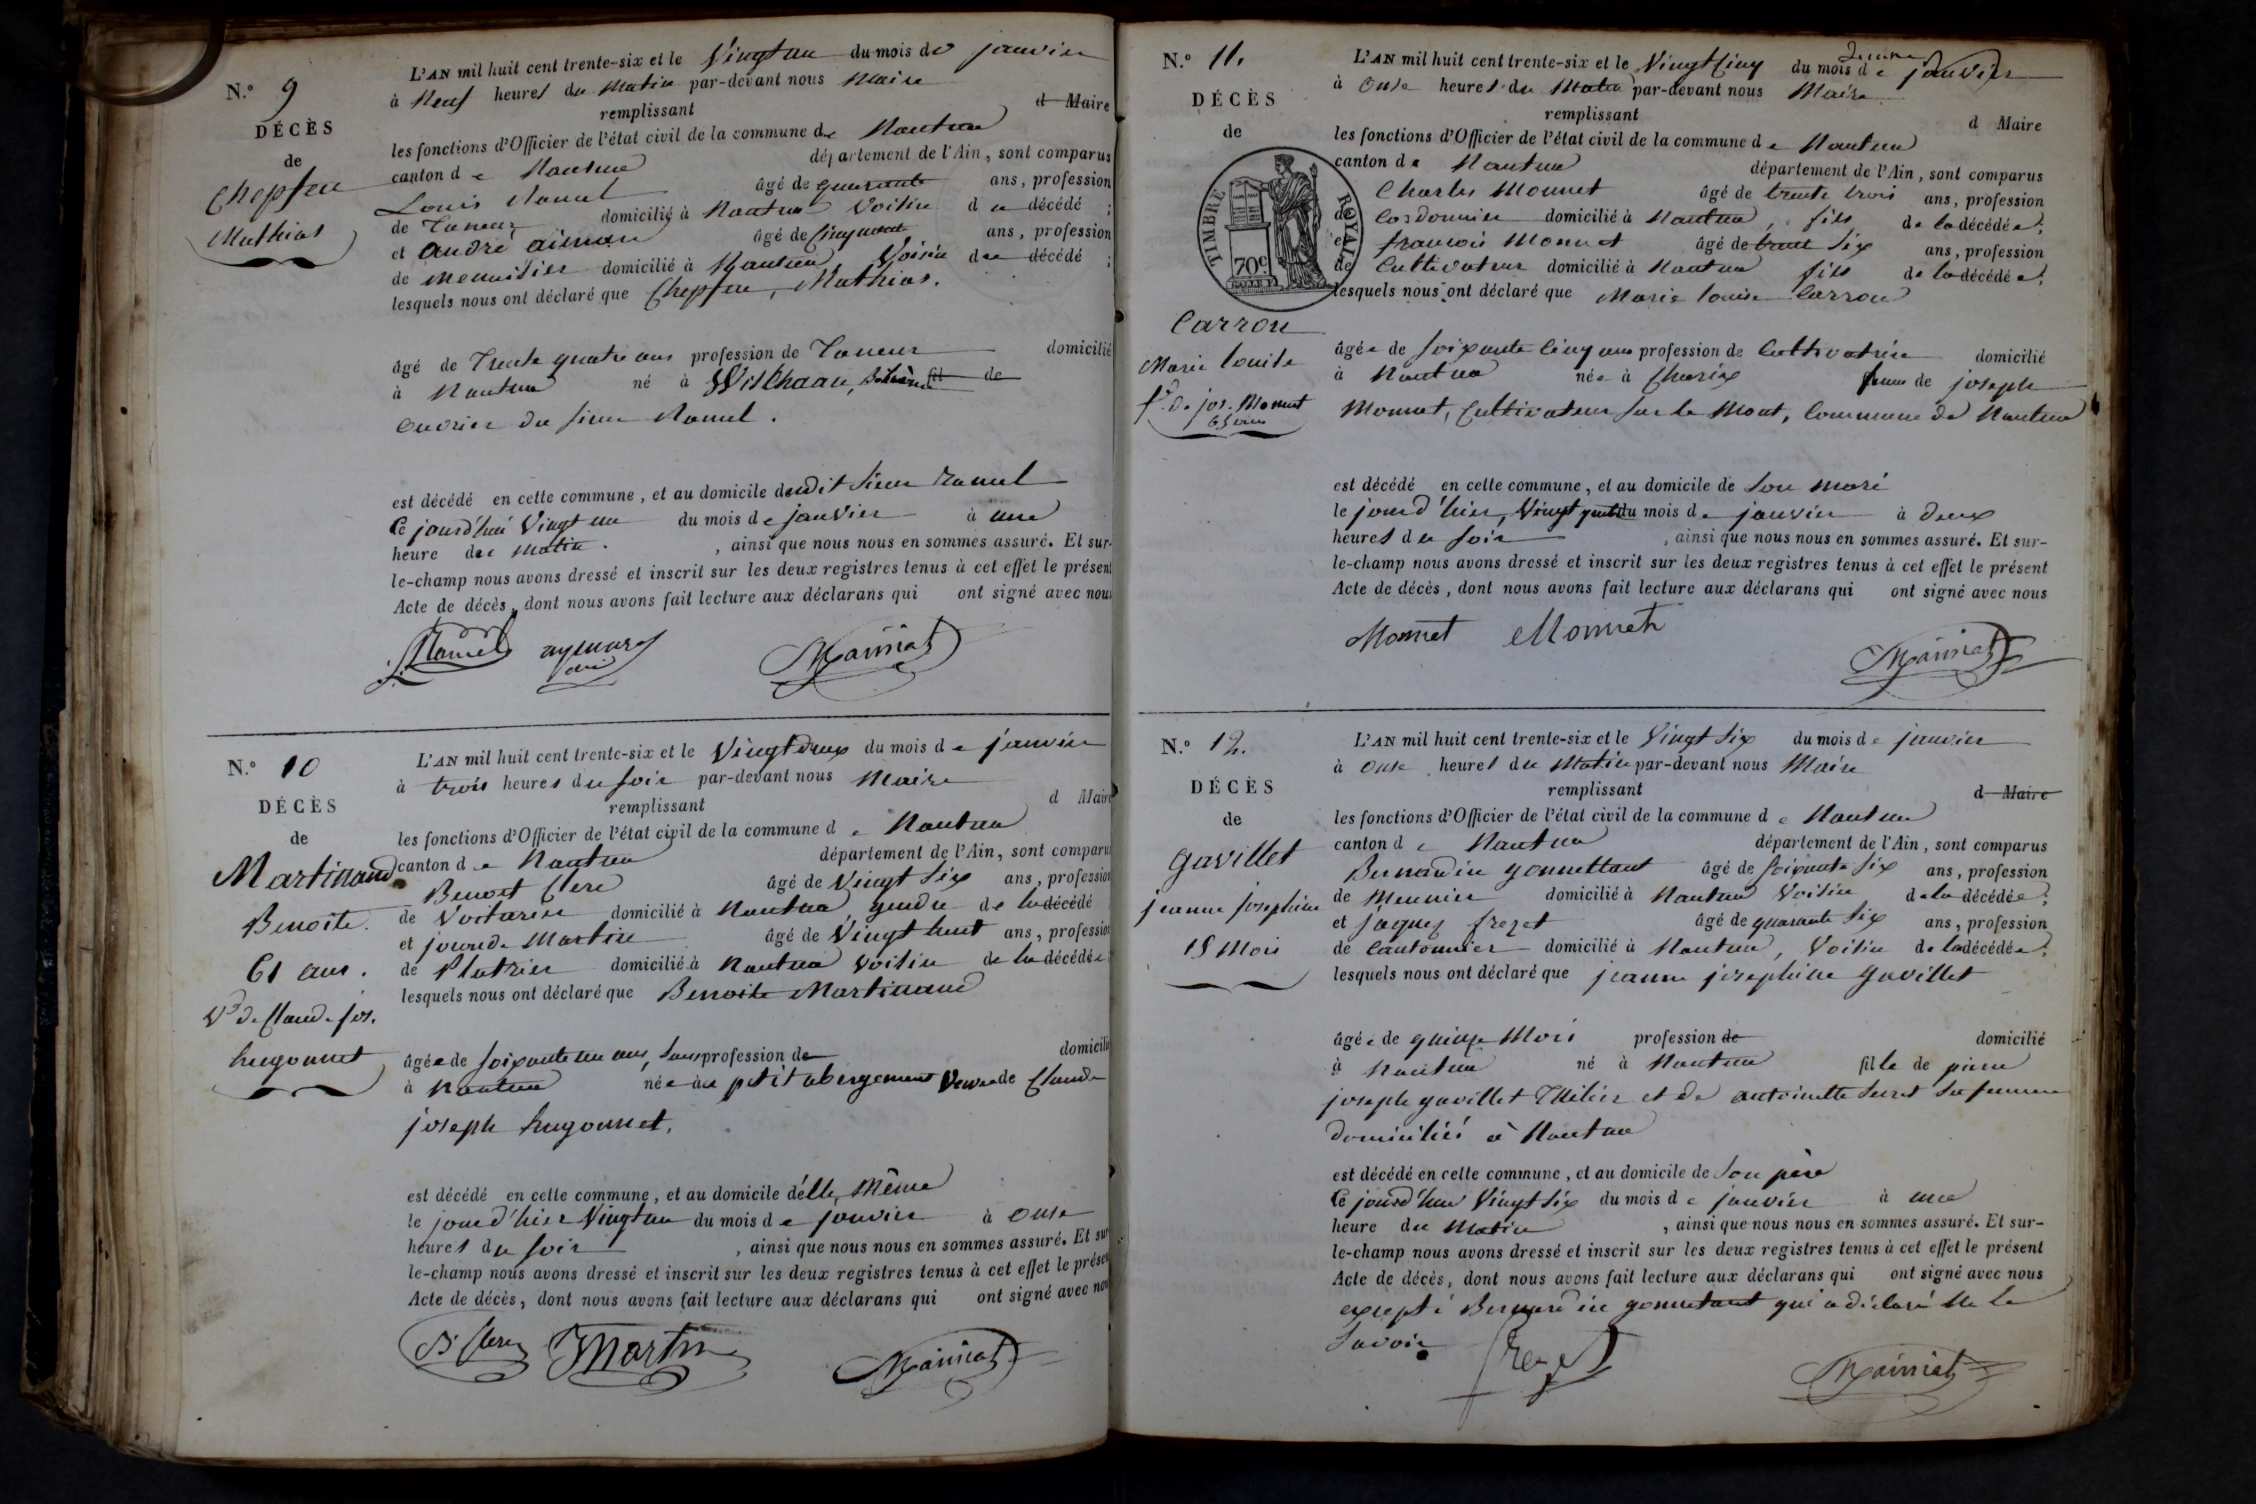 N.° 9
DÉCÈS
de
Chepfer
Mathias
L'AN mil huit cent trente-six et le Vingt un du mois de janvier
à Neuf heures du Matin par-devant nous Maire
remplissant d Maire
les fonctions d'Officier de l'état civil de la commune de Nantua
canton de Nantua département de l'Ain, sont comparus
Louis âgé de quarante ans, profession
de Taneur domicilié à Nantua Voisin du décédé ;
et andré aimar âgé de Cinquante ans, profession
de menuisier domicilié à Nantua Voisin du décédé ;
lesquels nous ont déclaré que Mathias.
âgé de Trente quatre ans profession de Taneur domicilié
à Nantua né à fil de
ouvrier du sieur
est décédé en cette commune, et au domicile dudit sieur
Ce jourd'hui Vingt un du mois de janvier à une
heure du matin. , ainsi que nous nous en sommes assuré. Et sur-
le-champ nous avons dressé et inscrit sur les deux registres tenus à cet effet le présent
Acte de décès, dont nous avons fait lecture aux déclarans qui ont signé avec nous
N.° 10
DÉCÈS
de
Martinand
Benoite.
61 ans.
Vve de Claude jos.
hugonnet
L'AN mil huit cent trente-six et le Vingt deux du mois de janvier
à trois heures du soir par-devant nous Maire
remplissant d Maire
les fonctions d'Officier de l'état civil de la commune de Nantua
canton de Nantua département de l'Ain, sont comparu
Benoit Clerc âgé de Vingt six ans, profession
de Voiturier domicilié à Nantua gendre de la décédé
et Martin âgé de Vingt huit ans, profession
de Platrier domicilié à Nantua Voisin de la décédée
lesquels nous ont déclaré que Benoite Martinand
âgée de soixante un ans, sans profession de domicilié
à Nantua née au petit abergement Veuve de Claude
joseph hugonnet.
est décédé en cette commune, et au domicile d'elle même
le jour d'hier Vingt un du mois de janvier à onse
heures du soir , ainsi que nous nous en sommes assuré. Et sur
le-champ nous avons dressé et inscrit sur les deux registres tenus à cet effet le présen
Acte de décès, dont nous avons fait lecture aux déclarans qui ont signé avec nou
B. Clerc Martin
N.° 11.
DÉCÈS
de
TIMBRE ROYAL
70c
Carron
Marie louise
fe de jos. Monnet
65 ans
L'AN mil huit cent trente-six et le Vingt Cinq du mois de janvier
à onse heures du Matin par-devant nous Maire
remplissant d Maire
les fonctions d'Officier de l'état civil de la commune de Nantua
canton de Nantua département de l'Ain, sont comparus
Charles Monnet âgé de trente trois ans, profession
de Cordonnier domicilié à Nantua, fils de la décédée ;
et françois Monnet âgé de trente six ans, profession
de Cultivateur domicilié à Nantua fils de la décédée ;
lesquels nous ont déclaré que Marie louise Carron
âgée de soixante cinq ans profession de Cultivatrice domicilié
à Nantua née à Charix femme de joseph
Monnet, Cultivateur sur le Mont, Commune de Nantua
est décédé en cette commune, et au domicile de son mari
le jour d'hier, du mois de janvier à deux
heures du soir , ainsi que nous nous en sommes assuré. Et sur-
le-champ nous avons dressé et inscrit sur les deux registres tenus à cet effet le présent
Acte de décès, dont nous avons fait lecture aux déclarans qui ont signé avec nous
Monnet Monnet
N.° 12.
DÉCÈS
de
gavillet
jeanne josephine
15 Mois
L'AN mil huit cent trente-six et le Vingt six du mois de janvier
à onse heures du Matin par-devant nous Maire
remplissant d Maire
les fonctions d'Officier de l'état civil de la commune de Nantua
canton de Nantua département de l'Ain, sont comparus
Bernardin âgé de soixante six ans, profession
de Meunier domicilié à Nantua Voisin de la décédée ;
et jaques frezet âgé de quarante six ans, profession
de Cantonnier domicilié à Nantua, Voisin de la décédée ;
lesquels nous ont déclaré que jeanne josephine gavillet
âgée de quinze Mois profession de domicilié
à Nantua né à Nantua fille de pierre
joseph gavillet et de antoinette sa femme
domiciliés à Nantua
est décédé en cette commune, et au domicile de son père
Ce jourd'hui Vingt six du mois de janvier à une
heure du Matin , ainsi que nous nous en sommes assuré. Et sur-
le-champ nous avons dressé et inscrit sur les deux registres tenus à cet effet le présent
Acte de décès, dont nous avons fait lecture aux déclarans qui ont signé avec nous
excepté Bernardin qui a déclaré ne le
savoir
frezet